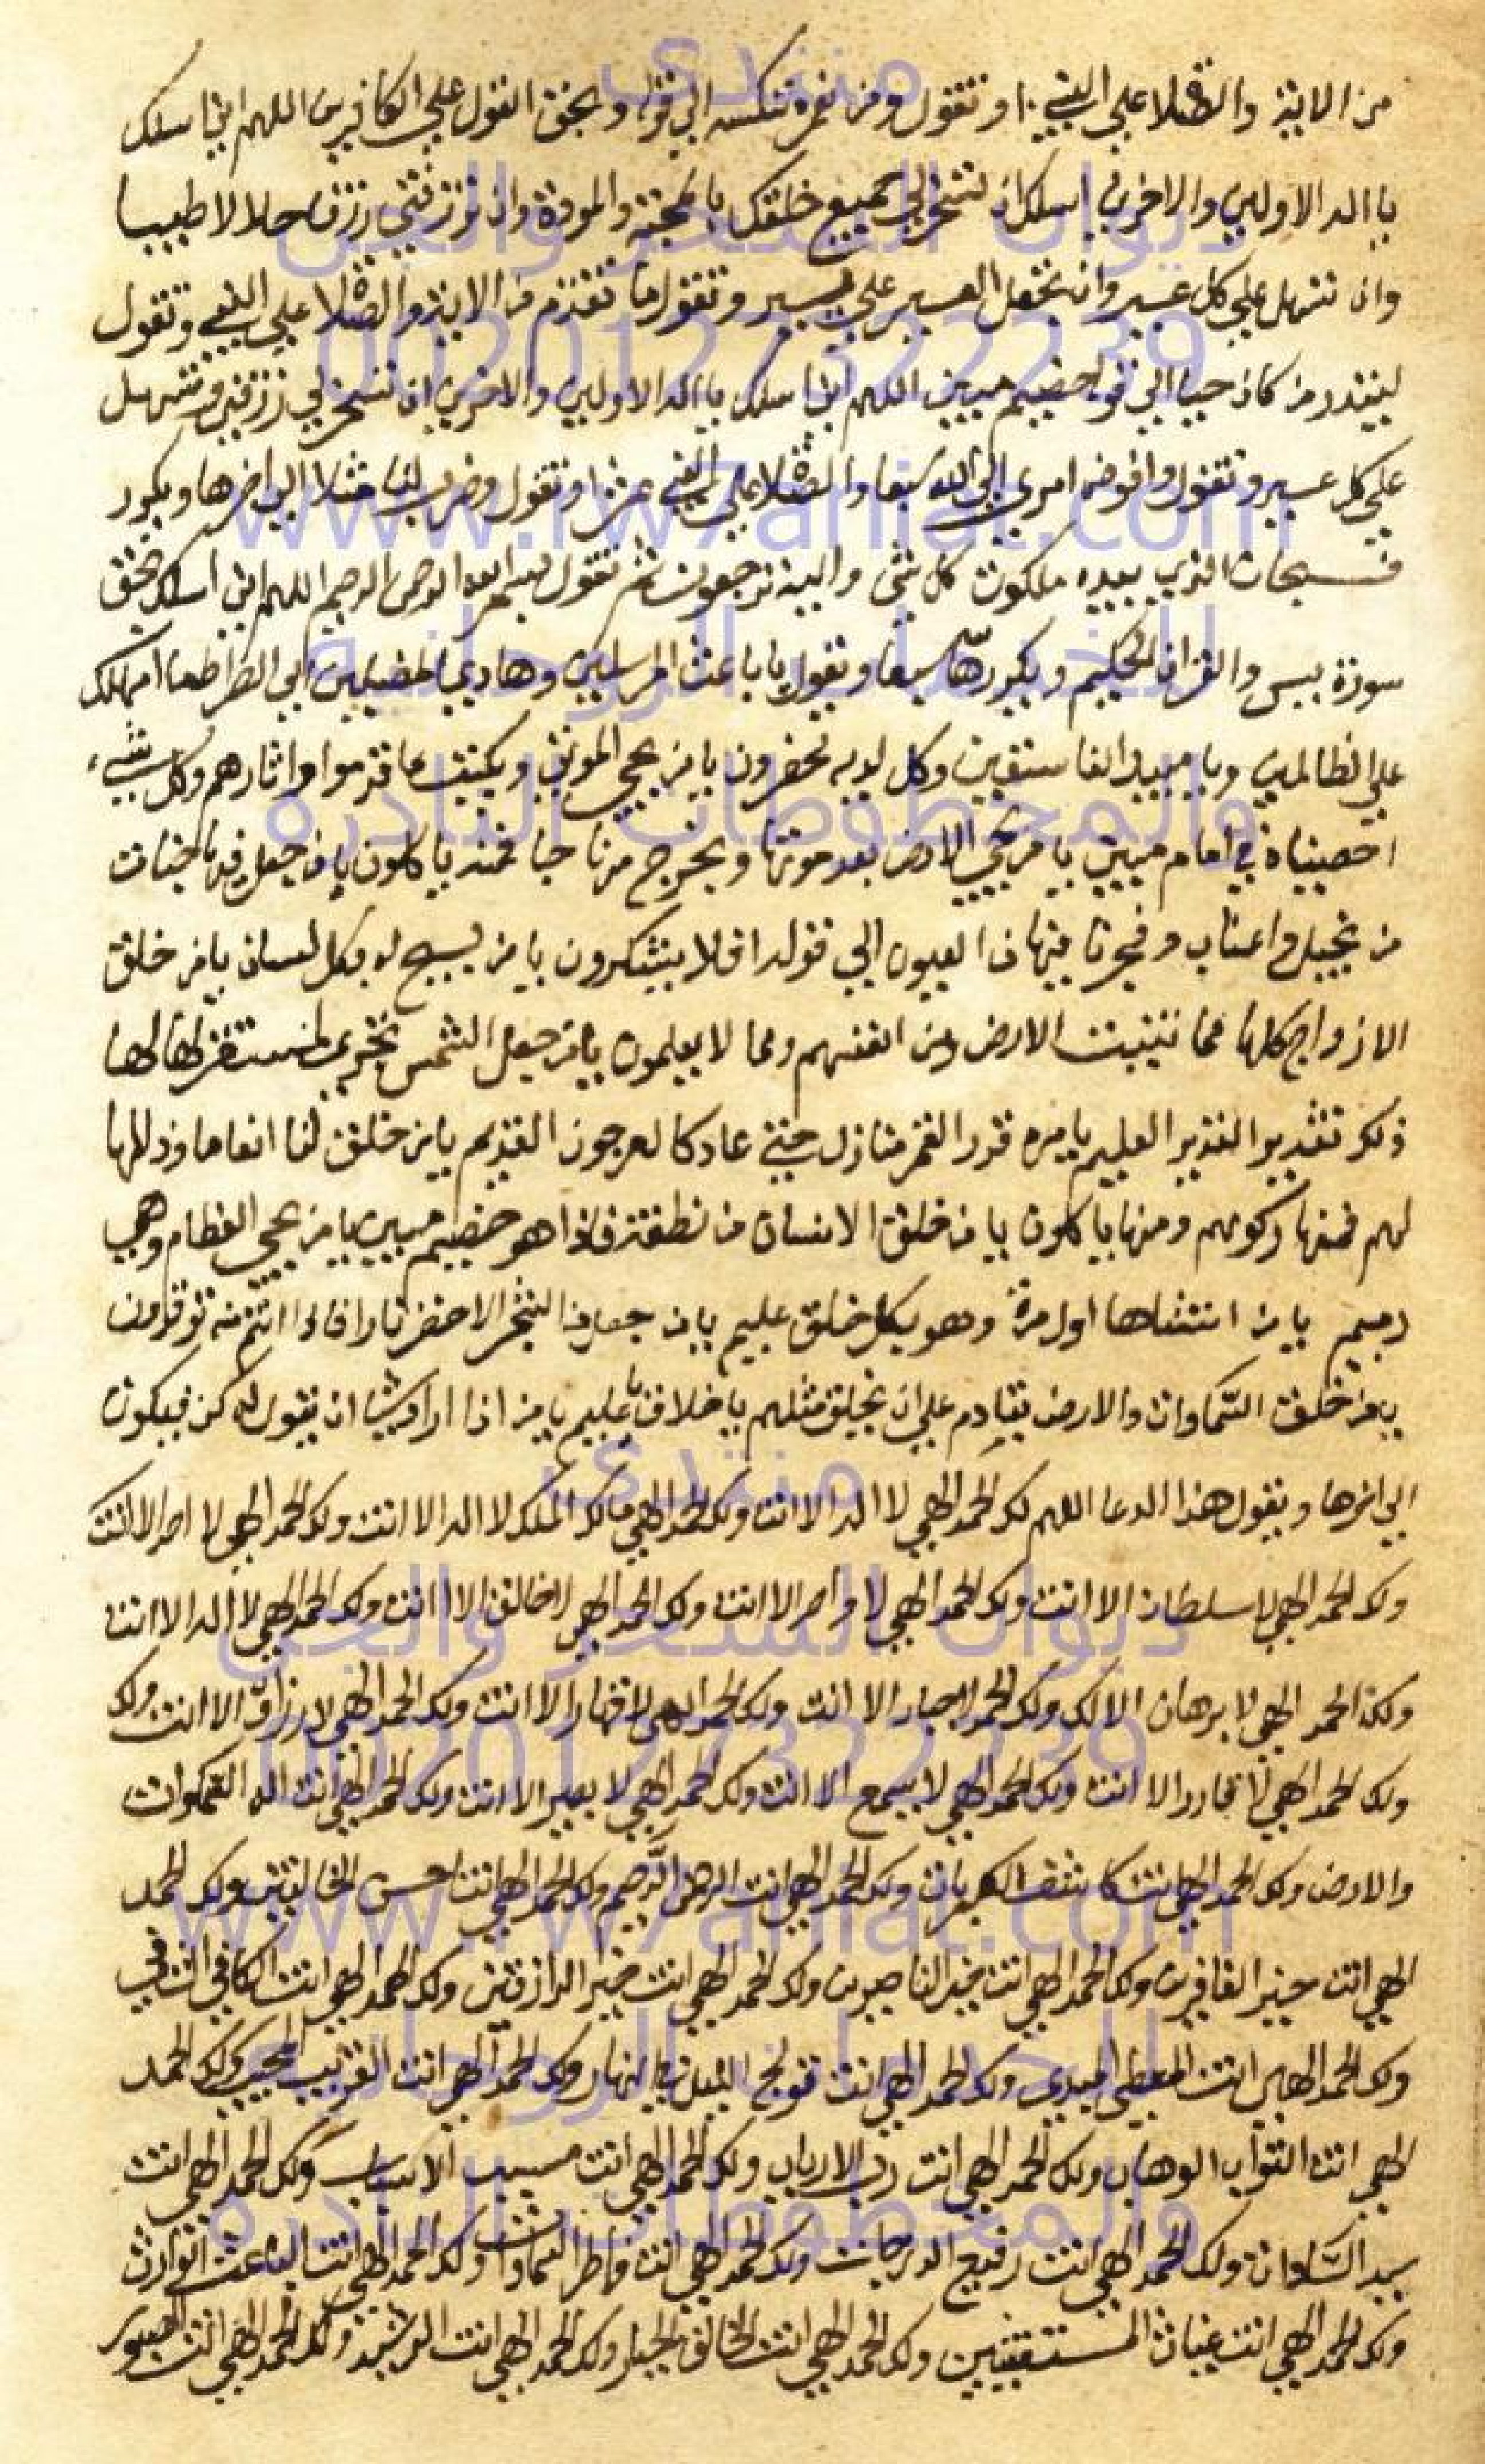 من الاية والصلاة على النبي ١٠ وتقول ومن نعمره ننكسه الى قوله ويحق القول على الكافرين اللهم اني اسلك
يا اله الاولين والاخرين اسلك ان تسخر لي جميع خلقك بالمحبة والمودة وان ترزقني رزقا حلالا طيبا
وان تسهل علي كل عسير وان تجعل العسير علي يسير وتقول ما تقدم من الاية والصلاة على النبي وتقول
لينذر من كان حيا الى قوله خصيم مبين اللهم اني اسلك يا اله الاولين والاخرين ان تسخر لي رزقي وتسهل
علي كل عسير وتقول وافوض امري الى الله سبعا والصلاة على النبي عشرا وتقول وضرب لنا مثلا الى اخرها ويكرر
فسبحان الذي بيده ملكوت كل شى واليه ترجعون ثم تقول بسم الله الرحمن الرحيم اللهم اني اسلك بحق
سورة يس والقران الحكيم ويكررها سبعا وتقول يا باعث المرسلين وهادي المضلين الى الصراط
على الظالمين ويا مبيد الفاسقين وكل لديه محضرون يا من يحي الموتى ويكتب ما قدموا واثارهم وكل شيء
احصيناه في امام مبين يا من يحي الارض بعد موتها ويخرج منها حبا فمنه ياكلون يا من جعل فيها جنات
من نخيل واعناب وفجرنا فيها من العيون الى قوله افلا يشكرون يا من يسبح له بكل لسان يا من خلق
الازواج كلها مما تنبت الارض ومن انفسهم ومما لا يعلمون يا من جعل الشمس تجري لمستقر لها لها
ذلك تقدير القدير العليم يا من قدر القمر منازل حتى عاد كالعرجون القديم يا من خلق لنا انعاما وذللها
لهم فمنها ركوبهم ومنها ياكلون يا من خلق الانسان من نطفة فاذا هو خصيم مبين يا من يحي العظام وهي
رميم يا من انشاها اول مرة وهو بكل خلق عليم يا من جعل من الشجر الاخضر نارا فاذا انتم منه توقدون
يا من خلق السماوات والارض بقادم على ان يخلق مثلهم يا خلاق يا عليم يا من اذا اراد شيا ان يقول له كن فيكون
الى اخرها ويقول هذا الدعا اللهم لك الحمد الهي لا اله الا انت ولك الحمد الهي مالك الملك لا اله الا انت ولك الحمد الهي لا امر الا انت
ولك الحمد الهي لا سلطان الا انت ولك الحمد الهي لا امر الا انت ولك الحمد الهي لا خالق الا انت ولك الحمد الهي لا اله الا انت
ولك الحمد الهي لا برهان الا لك ولك الحمد لا جبار الا انت ولك الحمد الهي لا قهار الا انت ولك الحمد الهي لا رزاق الا انت ولك
ولك الحمد الهي لا قادر الا انت ولك الحمد الهي لا سميع الا انت ولك الحمد الهي لا بصير الا انت ولك الحمد الهي انت اله السموات
والارض ولك الحمد الهي انت كاشف الكربات ولك الحمد الهي انت الرحمن الرحيم ولك الحمد الهي انت احسن الخالقين ولك الحمد
الهي انت خير الغافرين ولك الحمد الهي انت خير الناصرين ولك الحمد الهي انت خير الرازقين ولك الحمد الهي انت الكافي الشافي
ولك الحمد الهي انت المعطي المبدي ولك الحمد الهي انت تولج الليل في النهار ولك الحمد الهي انت القريب المجيب ولك الحمد
الهي انت التواب الوهاب ولك الحمد الهي انت رب الارباب ولك الحمد الهي انت مسبب الاسباب ولك الحمد الهي انت
السماوات ولك الحمد الهي انت رفيع الدرجات ولك الحمد الهي انت فاطر السماوات ولك الحمد الهي انت الباعث الوارث
ولك الحمد الهي انت غياث المستغيثين ولك الحمد الهي انت الخالق الجبار ولك الحمد الهي انت الرشيد ولك الحمد الهي انت الصبور
منتدى
ديوان السحر والجن
00201127322239
www.rw7aniat.com
للخدمات الروحانية
والمخطوطات النادرة
منتدى
ديوان السحر والجن
00201127322239
www.rw7aniat.com
للخدمات الروحانية
والمخطوطات النادرة